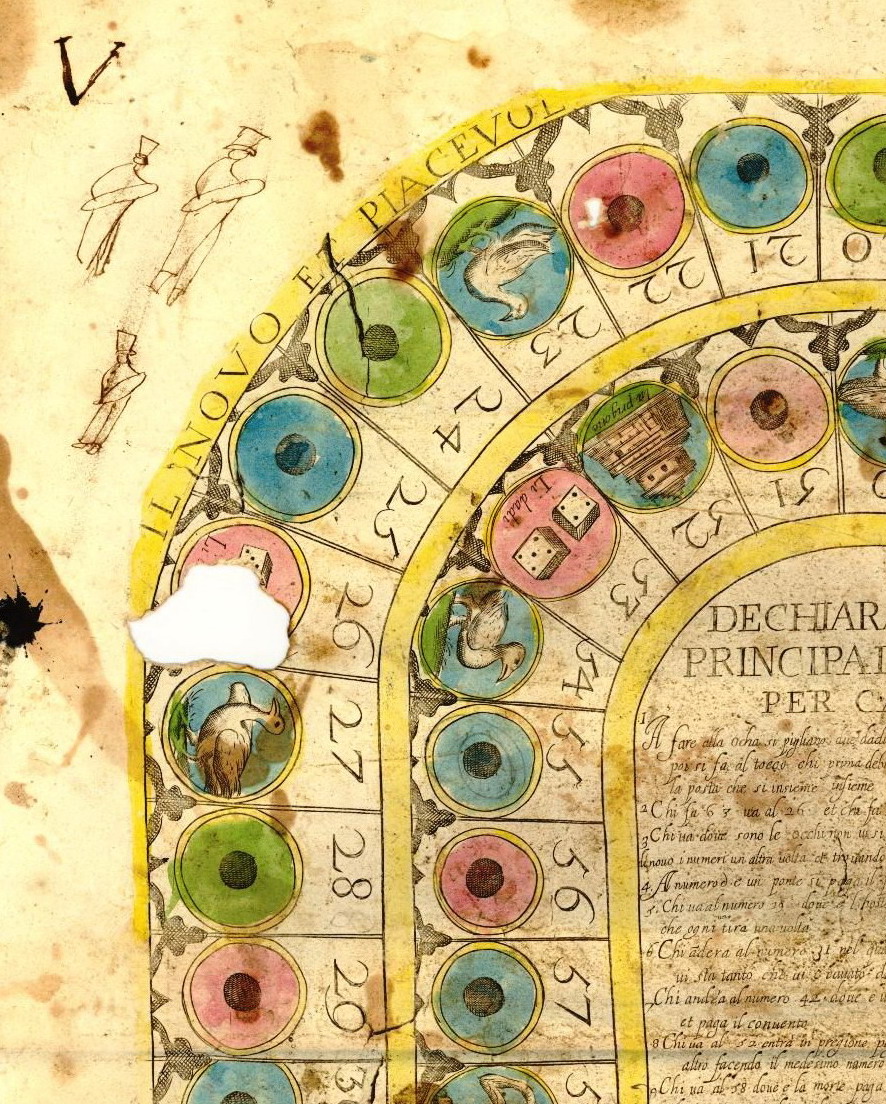 V
IL NOVO ET PIACEVOL
20
21
22
23
24
25
26
27
28
29
30
51
52
53
54
55
56
57
la prigione
Li dadi
Li
DECHIARA
PRINCIPAL
PER C
1 A fare alla ocha si pigliano due dadi
poi si fa al tocco chi prima deb
la posta che si insieme insieme
2 Chi fa 6 3 va al 26 et chi fa
3 Chi va dove sono le occhi non vi si
di novo i numeri un altra volta et trovando
4 Al numero 6 e un ponte si paga il
5 Chi va al numero 18 dove e l hos
che ogni tira una volta
6 Chi andera al numero 31 nel
vi sta tanto che vi e cavato d
Chi andra al numero 42 dove e
et paga il convento
8 Chi va al 52 entra in pregione pa
altro facendo il medesimo numero
9 Chi va al 58 dove e la morte paga